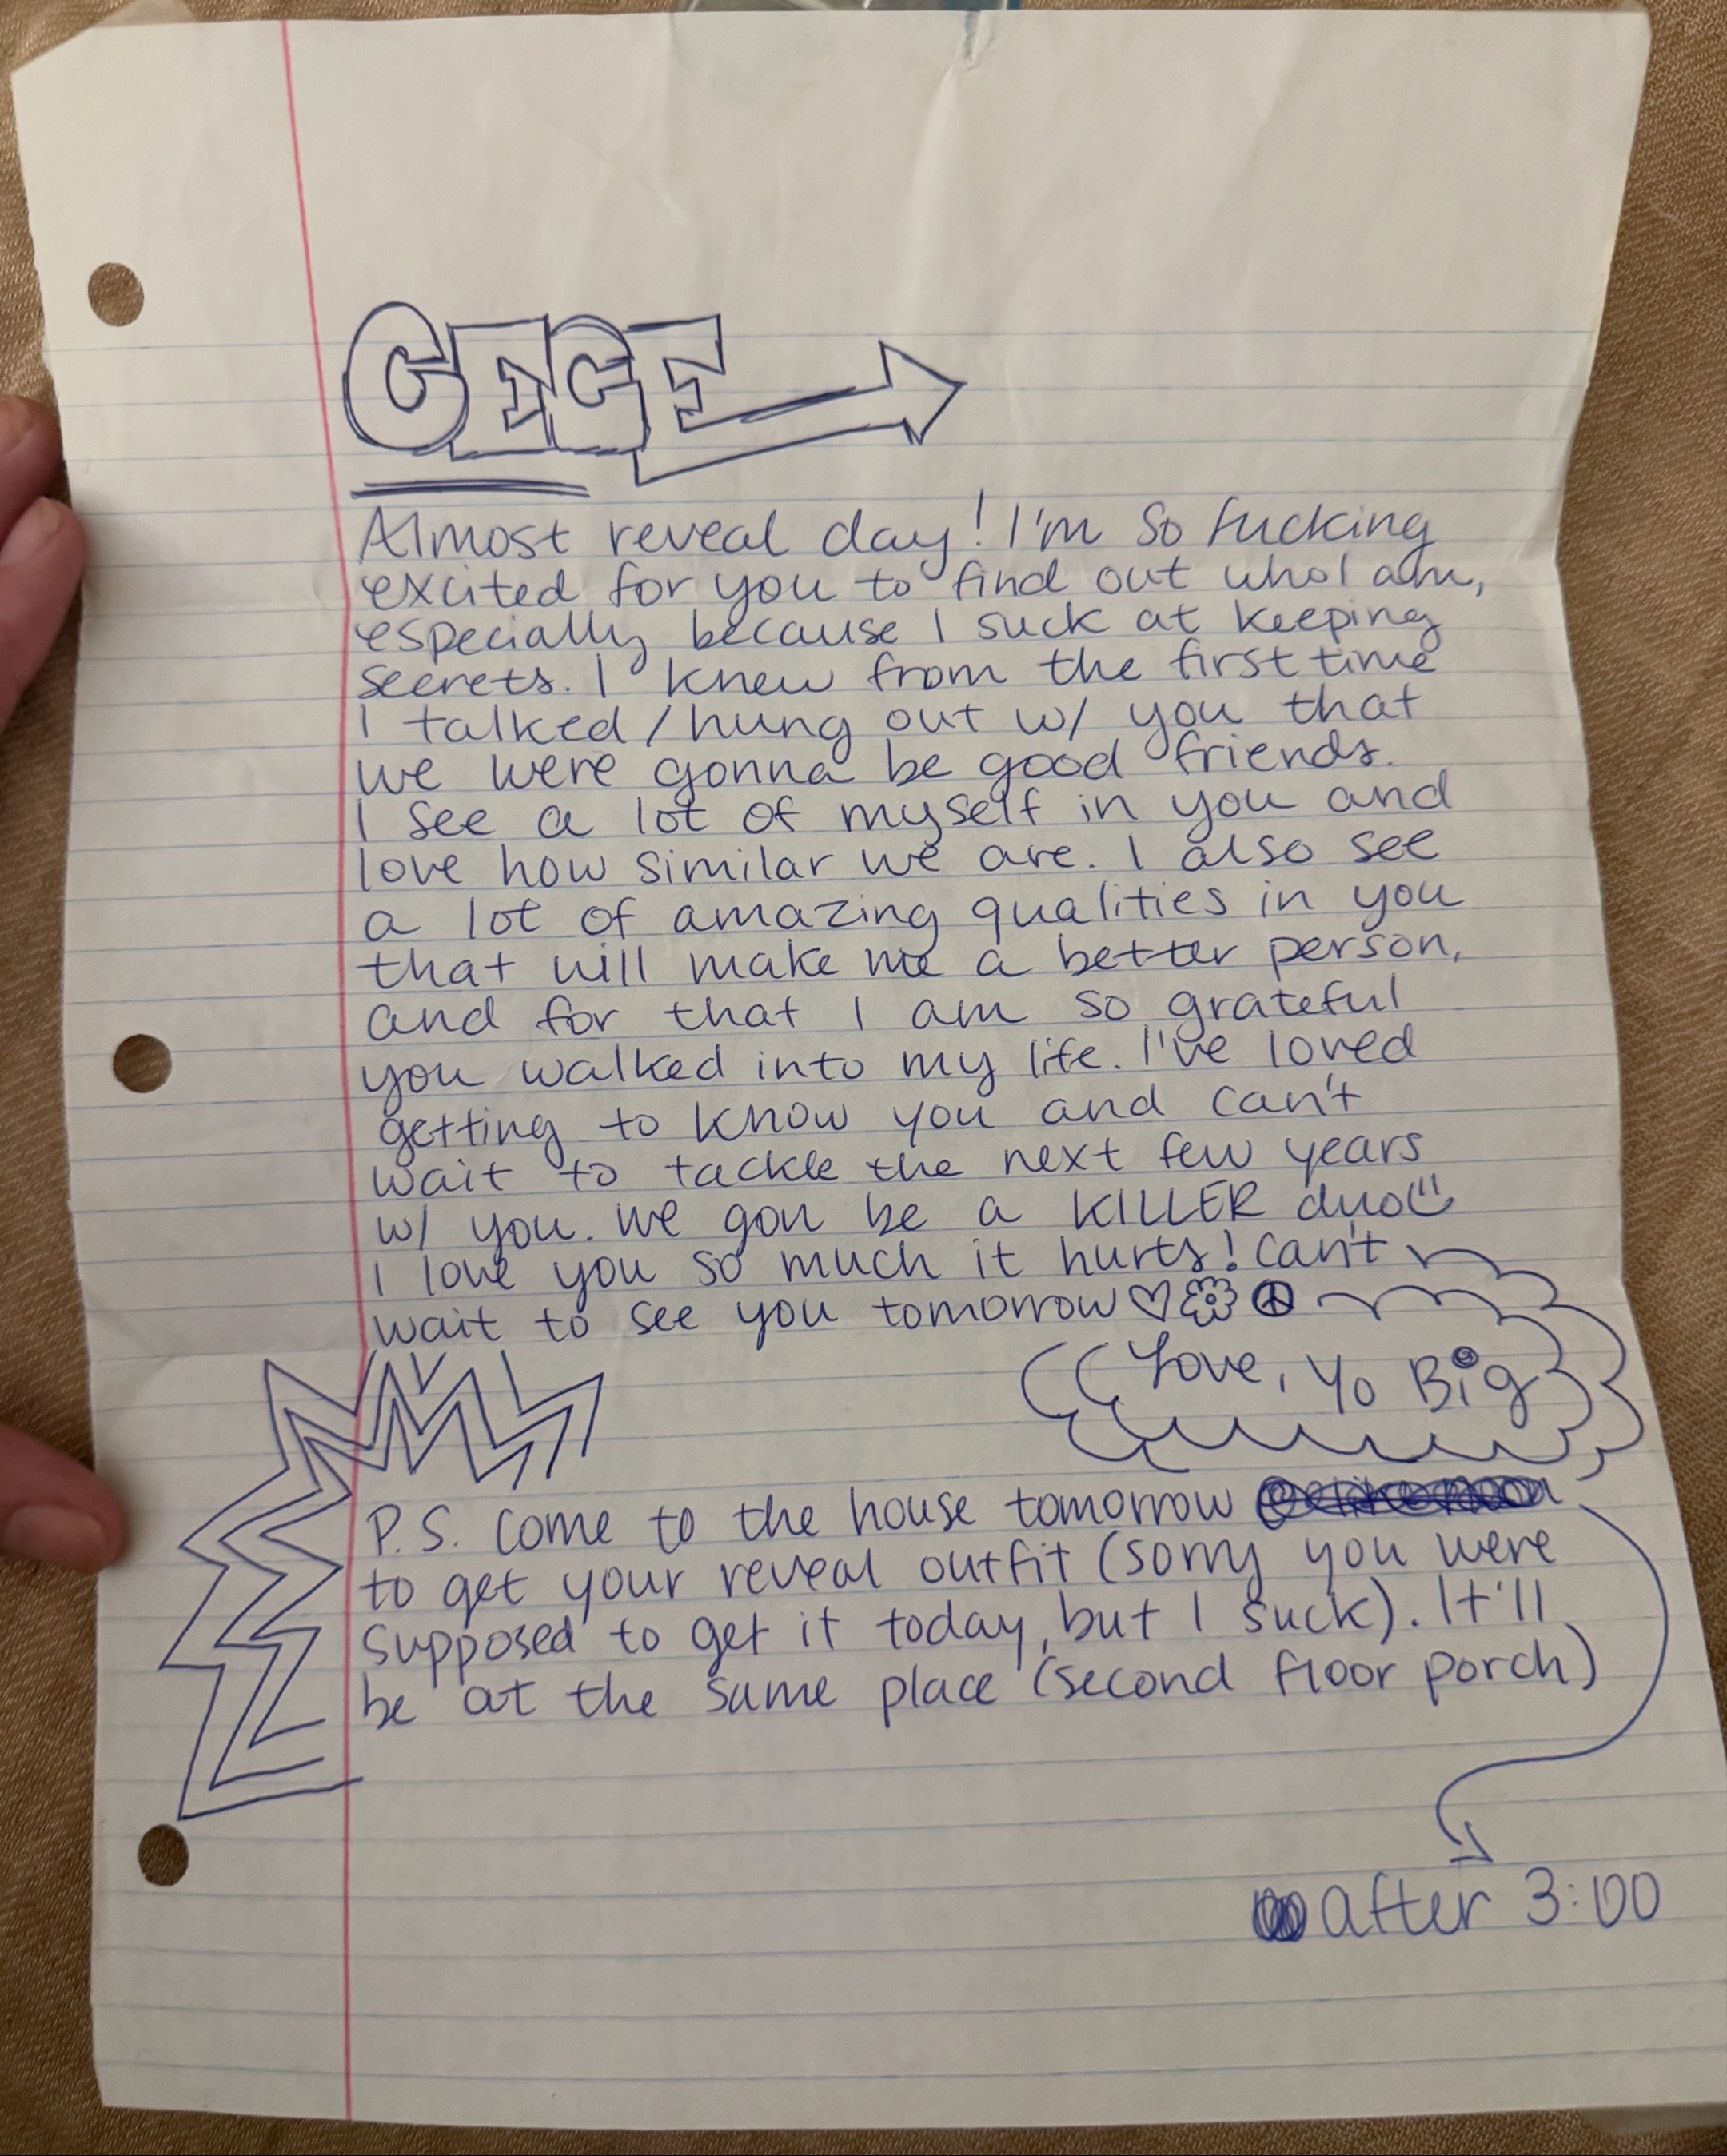 CECE
Almost reveal day! I'm so fucking
excited for you to find out who I am,
especially because I suck at keeping
secrets. I knew from the first time
I talked/hung out w/ you that
we were gonna be good friends.
I see a lot of myself in you and
love how similar we are. I also see
a lot of amazing qualities in you
that will make me a better person,
and for that I am so grateful
you walked into my life. I've loved
getting to know you and can't
wait to tackle the next few years
w/ you. We gon be a KILLER duo
I love you so much it hurts! Can't
wait to see you tomorrow ♡
Love, Yo Big
P.S. Come to the house tomorrow
to get your reveal outfit (sorry you were
supposed to get it today, but I suck). It'll
be at the same place (second floor porch)
after 3:00